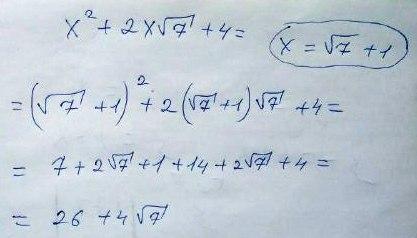 x² + 2x√7 + 4 = x = √7 + 1
= (√7 + 1)² + 2(√7 + 1)√7 + 4 =
= 7 + 2√7 + 1 + 14 + 2√7 + 4 =
= 26 + 4√7